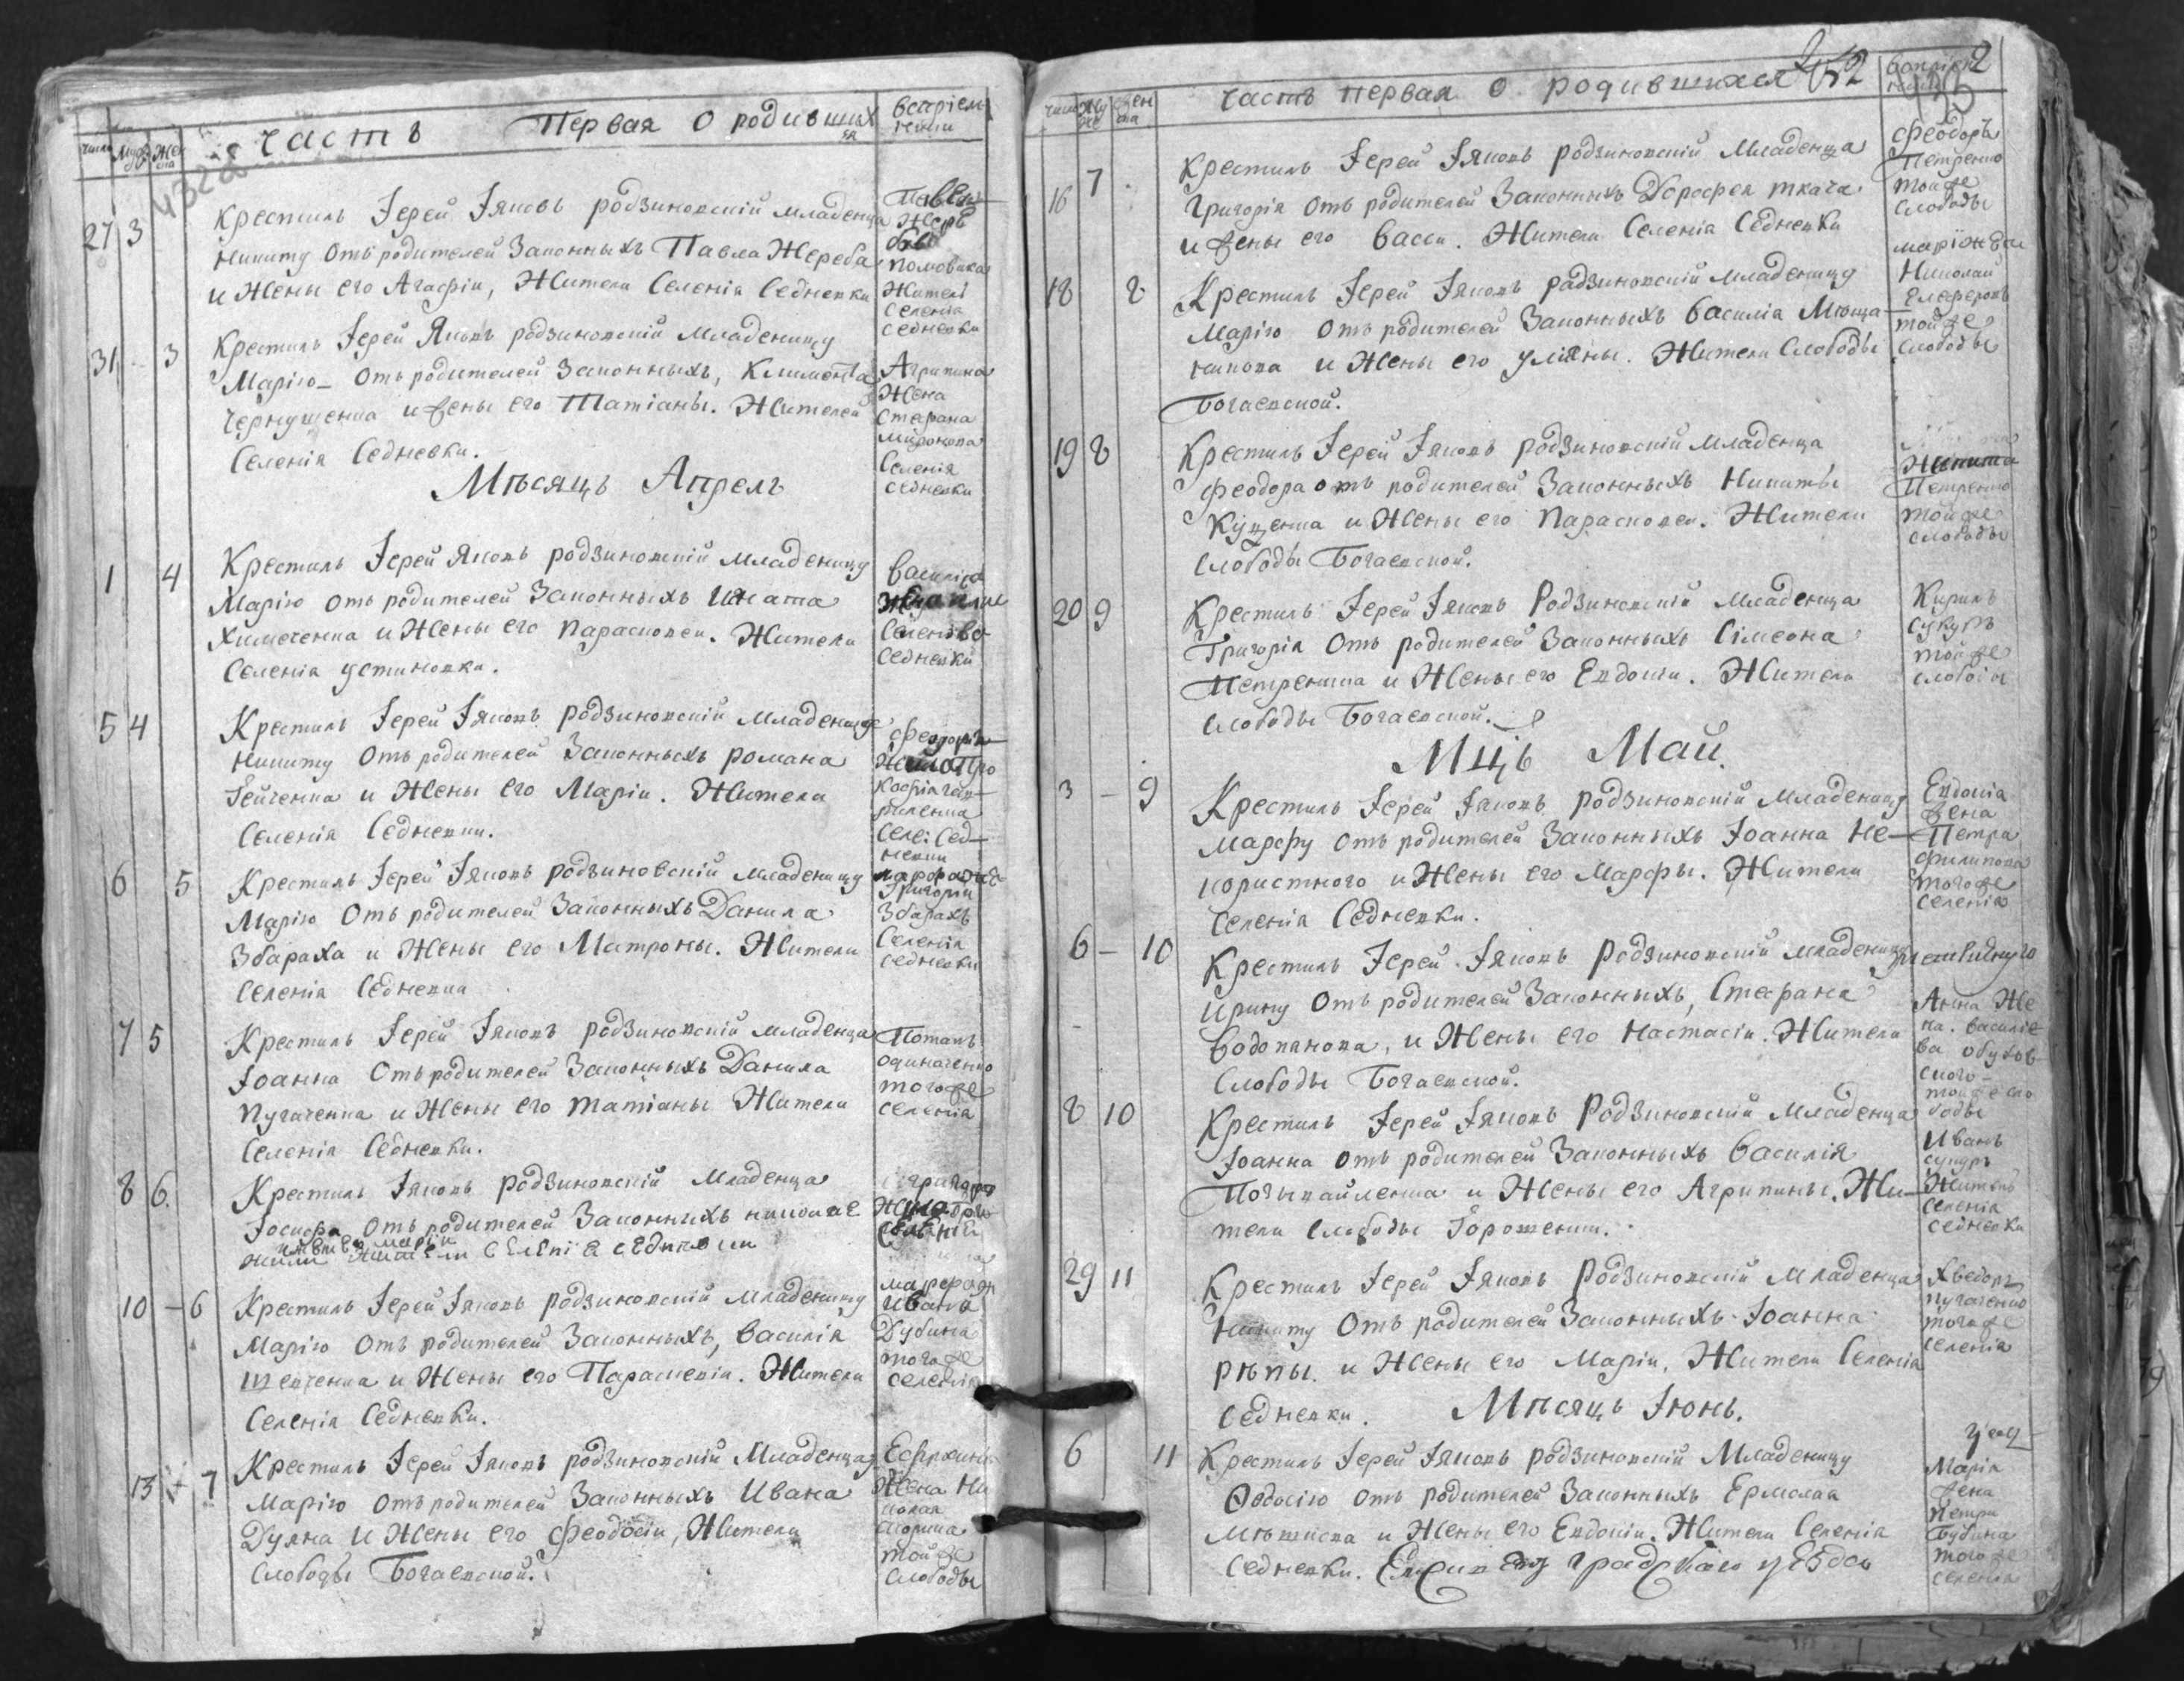 часть Первая О родивших
ся
восприем
ники
числа
Муж Жен
27 3
Крестилъ Іерей Іяковъ родзиновскій младенца
Никиту Отъ родителей Законныхъ Павла Жереба
и Жены его Агафіи, Жители Селенія Седневки
Житель
Селенія
Седневки
31 3
Крестилъ Іерей Яковъ родзиновскій Младеницу
Марію Отъ родителей Законныхъ, Климента
Чернушенка и жены его Татіаны. Жителей
Селенія Седневки.
Агрипина
Жена
Стефана
Миронова
Селенія
Седневки
Мѣсяцъ Апрель
1 4
Крестилъ Іерей Яковъ родзиновскій Младеницу
Марію отъ родителей Законныхъ Игната
Химоченка и Жены его Парасковеи. Жители
Селенія устиновки.
Седневки
5 4
Крестилъ Іерей Іяковъ родзиновскій Младеница
Никиту Отъ родителей Законныхъ романа
и Жены его Маріи. Жители
Селенія Седневки.
Селе: Сед
невки
6 5
Крестилъ Іерей Іяковъ родзиновскій младеницу
Марію Отъ родителей Законныхъ Данила
Збараха и Жены его Матроны. Жители
Селенія Седневки
Григорія
Збарахъ
Селенія
Седневки
7 5
Крестилъ Іерей Іяковъ родзиновскій младенца
Іоанна Отъ родителей Законныхъ Данила
Пугаченка и Жены его татіаны Жители
Селенія Седневки.
Потапъ
одиначенко
тогоже
селенія
8 6
Крестилъ Іяковъ родзиновскій Младенца
Іосифа Отъ родителей Законныхъ николае
Жители Селеніе Седневки
10 – 6
Крестилъ Іерей Іяковъ родзиновскій Младеницу
Марію Отъ родителей Законныхъ, Василія
Шевченка и Жены его Параскевіи. Жители
Селенія Седневки.
Ивана
Дубина
тогоже
селенія
13 7
Крестилъ Іерей Іяковъ родзиновскій Младеницу
Марію Отъ родителей Законныхъ Ивана
Дуяна и Жены его Феодосіи, Жители
Слободы Богаевской.
Жена Ни
колая
тойже
Слободы
часть первая О родившихся
числа
16 7
Крестилъ Іерей Іяковъ родзиновскій Младенца
Григорія Отъ родителей Законныхъ Дорофея ткача
и жены его Васси. Жители Селенія Седневки
Феодоръ
Петренко
тойже
Слободы
18 8
Крестилъ Іерей Іяковъ радзиновскій младеницу
Марію Отъ родителей Законныхъ Василія Мѣща
никова и Жены его уліяны. Жители Слободы
Богаевской.
Николай
тойже
Слободы
19 8
Крестилъ Іерей Іяковъ родзиновскій Младенца
Феодора отъ родителей Законныхъ Никиты
Куценка и Жены его Парасковеи. Жители
Слободы Богаевской.
Никита
Петренко
тойже
слободы
20 9
Крестилъ Іерей Іяковъ Родзиновскій Младенца
Григорія Отъ родителей Законныхъ Сімеона
Петренка и Жены его Евдокіи. Жители
Слободы Богаевской.
Кирилъ
Сукуръ
тойже
слободы
Мцъ Май.
3 – 9
Крестилъ Іерей Іяковъ родзиновскій Младеницу
Марфу Отъ родителей Законныхъ Іоанна Не
користного и Жены его Марфы. Жители
Селенія Седневки.
Евдокія
жена
Петра
филипова
тогоже
Селенія
6 – 10
Крестилъ Іерей Іяковъ Родзиновскій младеницу
Ирину Отъ родителей Законныхъ, Стефана
Водопянова, и Жены его Настасіи. Жители
Слободы Богаевской.
Анна Же
на Василіе
ва обухов
ского
тойже сло
боды
8 10
Крестилъ Іерей Іяковъ Родзиновскій Младенца
Іоанна Отъ родителей Законныхъ Василія
и Жены его Агрипины. Жи
тели Слободы Горожении.
Иванъ
сукуръ
Житель
Селенія
Седневки
29 11
Крестилъ Іерей Іяковъ Родзиновскій Младенца
Никиту Отъ родителей Законныхъ Іоанна
рѣпы. и Жены его Маріи. Жители Селенія
Седневки.
Хведоръ
Пугаченко
тогоже
Селенія
Мѣсяцъ Іюнь.
6 11
Крестилъ Іерей Іяковъ родзиновскій Младеницу
Ѳодосію Отъ родителей Законныхъ Ермолая
и Жены его Евдокіи. Жители Селенія
Седневки.
Марія
жена
Петра
Бубина
тогоже
селенія